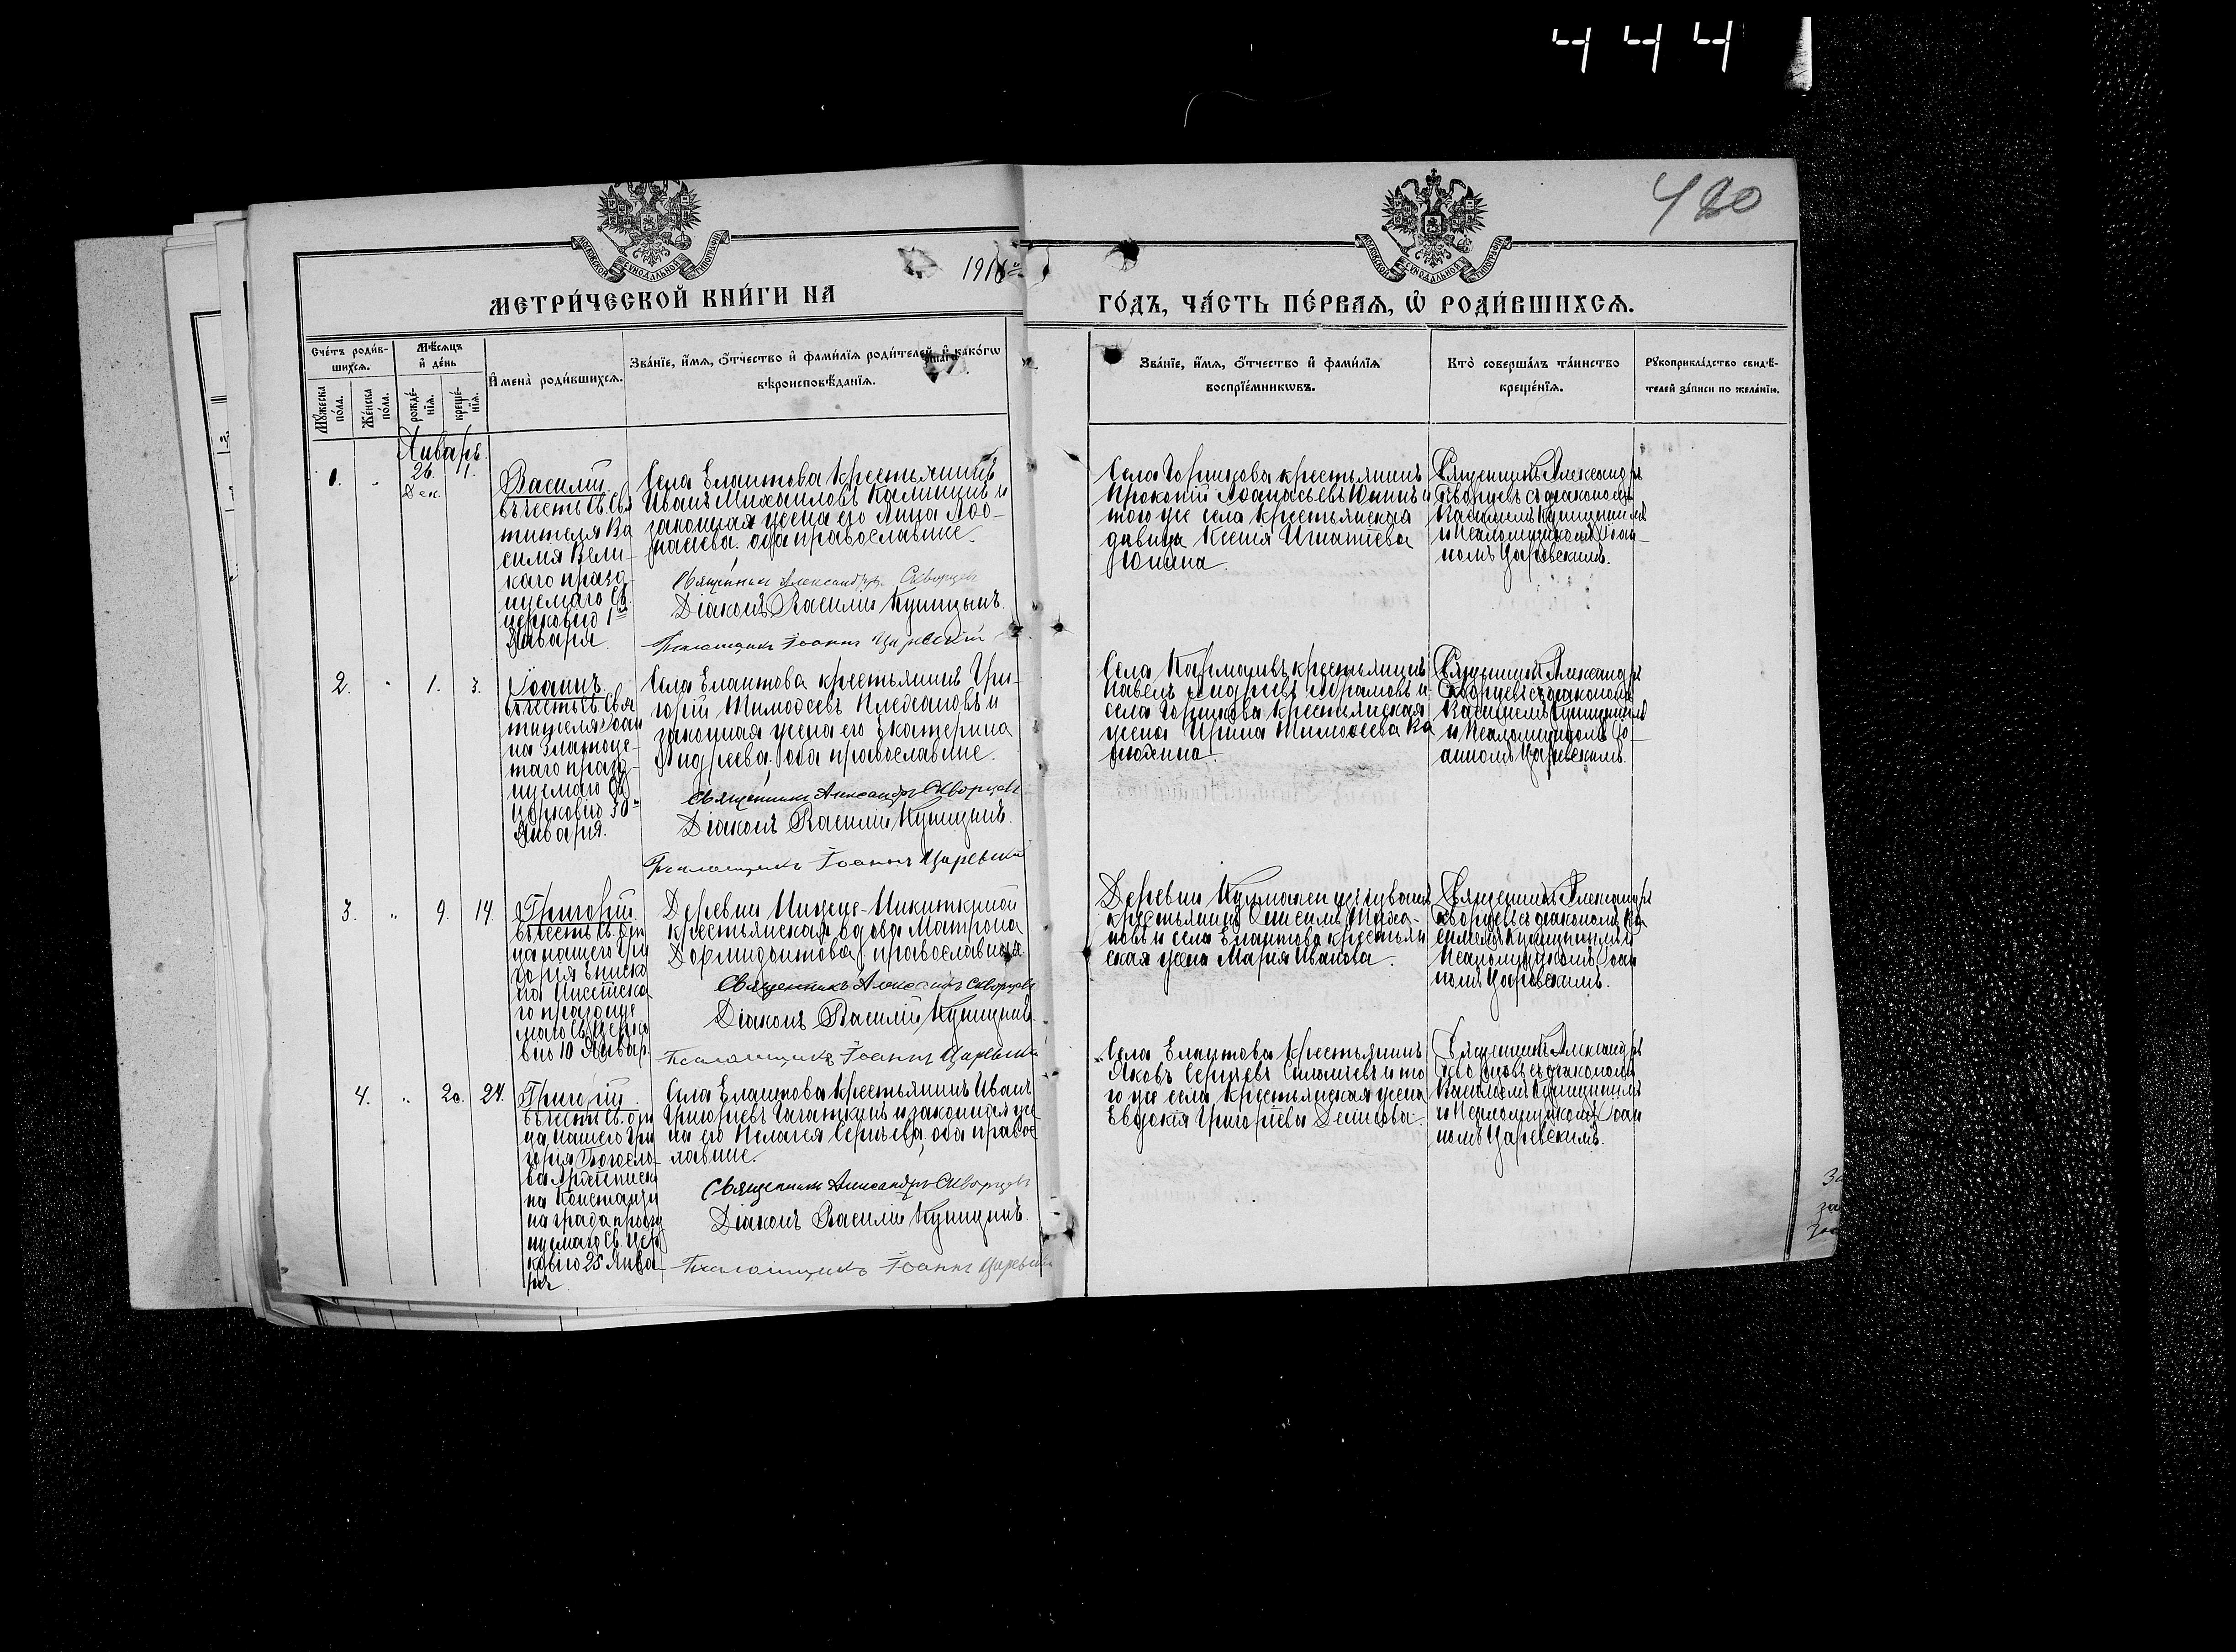 444
480
МОСКОВСКОЙ СУНОДАЛЬНОЙ ТИПОГРАФІИ
МОСКОВСКОЙ СУНОДАЛЬНОЙ ТИПОГРАФІИ
МЕТРИ́ЧЕСКОЙ КНИ́ГИ НА 1916й
ГО́ДЪ, ЧА́СТЬ ПЕ́РВАЯ, Ѡ РОДИ́ВШИХСЯ.
Сче́тъ роди́в-
шихся.
Мѣ́сяцъ
и де́нь
Мꙋ́жеска по́ла.
Же́нска по́ла.
рожде́-
нїя.
креще́-
нїя.
Имена̀ роди́вшихся.
Зва́нїе, и́мя, о́тчество и фами́лїя роди́телей, и како́гѡ
вѣроисповѣ́данїя.
Зва́нїе, и́мя, о́тчество и фами́лїя
воспрїе́мникѡвъ.
Кто̀ соверша́лъ та́инство
креще́нїя.
Рꙋкоприкла́дство свидѣ́-
телей за́писи по жела́нїю.
Январь.
1.
"
26.
Дек.
1.
Василій
въ честь св. Свя
тителя Ва
силія Вели-
каго празд-
нуемаго Св.
церковію 1го
Января.
Села Елаптова крестьянинъ
Иванъ Михаиловъ Калининъ и
законная жена его Анна Афо-
насіева. оба православные.
Священникъ Александръ Скворцовъ
Діаконъ Василій Куницынъ.
Псаломщикъ Іоаннъ Царевскій
Села Горшкова крестьянинъ
Прокопій Афанасьевъ Юнинъ и
того же села крестьянская
дѣвица Ксенія Игнатіева
Юнина.
Священникъ Александръ
Скворцовъ съ діакономъ
Василіемъ Куницынымъ
и Псаломщикомъ Іоан-
номъ Царевскимъ.
2.
"
1.
3.
Іоаннъ
въ честь св. Свя
тителя Іоан
на Златоус-
таго празд-
нуемаго Св.
церковію 30го
Января.
Села Елаптова крестьянинъ Гри-
горій Тимофеевъ
законная жена его Екатерина
Андреева. оба православные.
Священникъ Александръ Скворцовъ
Діаконъ Василій Куницынъ.
Псаломщикъ Іоаннъ Царевскій
Села крестьянинъ
Павелъ Андреевъ Абрамовъ и
села Горшкова крестьянская
жена Ирина Тимофеева
Священникъ Александръ
Скворцовъ съ діакономъ
Василіемъ Куницынымъ
и Псаломщикомъ Іо-
анномъ Царевскимъ.
3.
"
9.
14.
Григорій
въ честь св. От
ца нашего Гри
горія Еписко
па Нисска
го праздну
маго Св. Церко
вію 10 Январ.
Деревни
крестьянская вдова Матрона
Дормидонтова, православная.
Священникъ Александръ Скворцовъ
Діаконъ Василій Куницынъ.
Псаломщикъ Іоаннъ Царевскій
Деревни
крестьянинъ
новъ и села Елаптова крестьян
ская жена Марія Иванова.
Священникъ Александръ
Скворцовъ съ діакономъ Ва
силіемъ Куницынымъ и
Псаломщикомъ Іоан
номъ Царевскимъ.
4.
"
20.
24.
Григорій.
въ честь св. От
ца нашего Гри
горія Богосло-
ва Архіеписко
па Константи
на града празд
нуемаго Св. Цер
ковію 25 Янва-
ря.
Села Елаптова крестьянинъ Иванъ
Григорьевъ Гагаткинъ и законная же-
на его Пелагея Сергѣева, оба правос-
лавные.
Священникъ Александръ Скворцовъ
Діаконъ Василій Куницынъ.
Псаломщикъ Іоаннъ Царевскій
Села Елаптова крестьянинъ
Яковъ Сергѣевъ и то
го же села крестьянская жена
Евдокія Григоріева
Священникъ Александръ
Скворцовъ съ діакономъ
Василіемъ Куницынымъ
и Псаломщикомъ Іоан
номъ Царевскимъ.